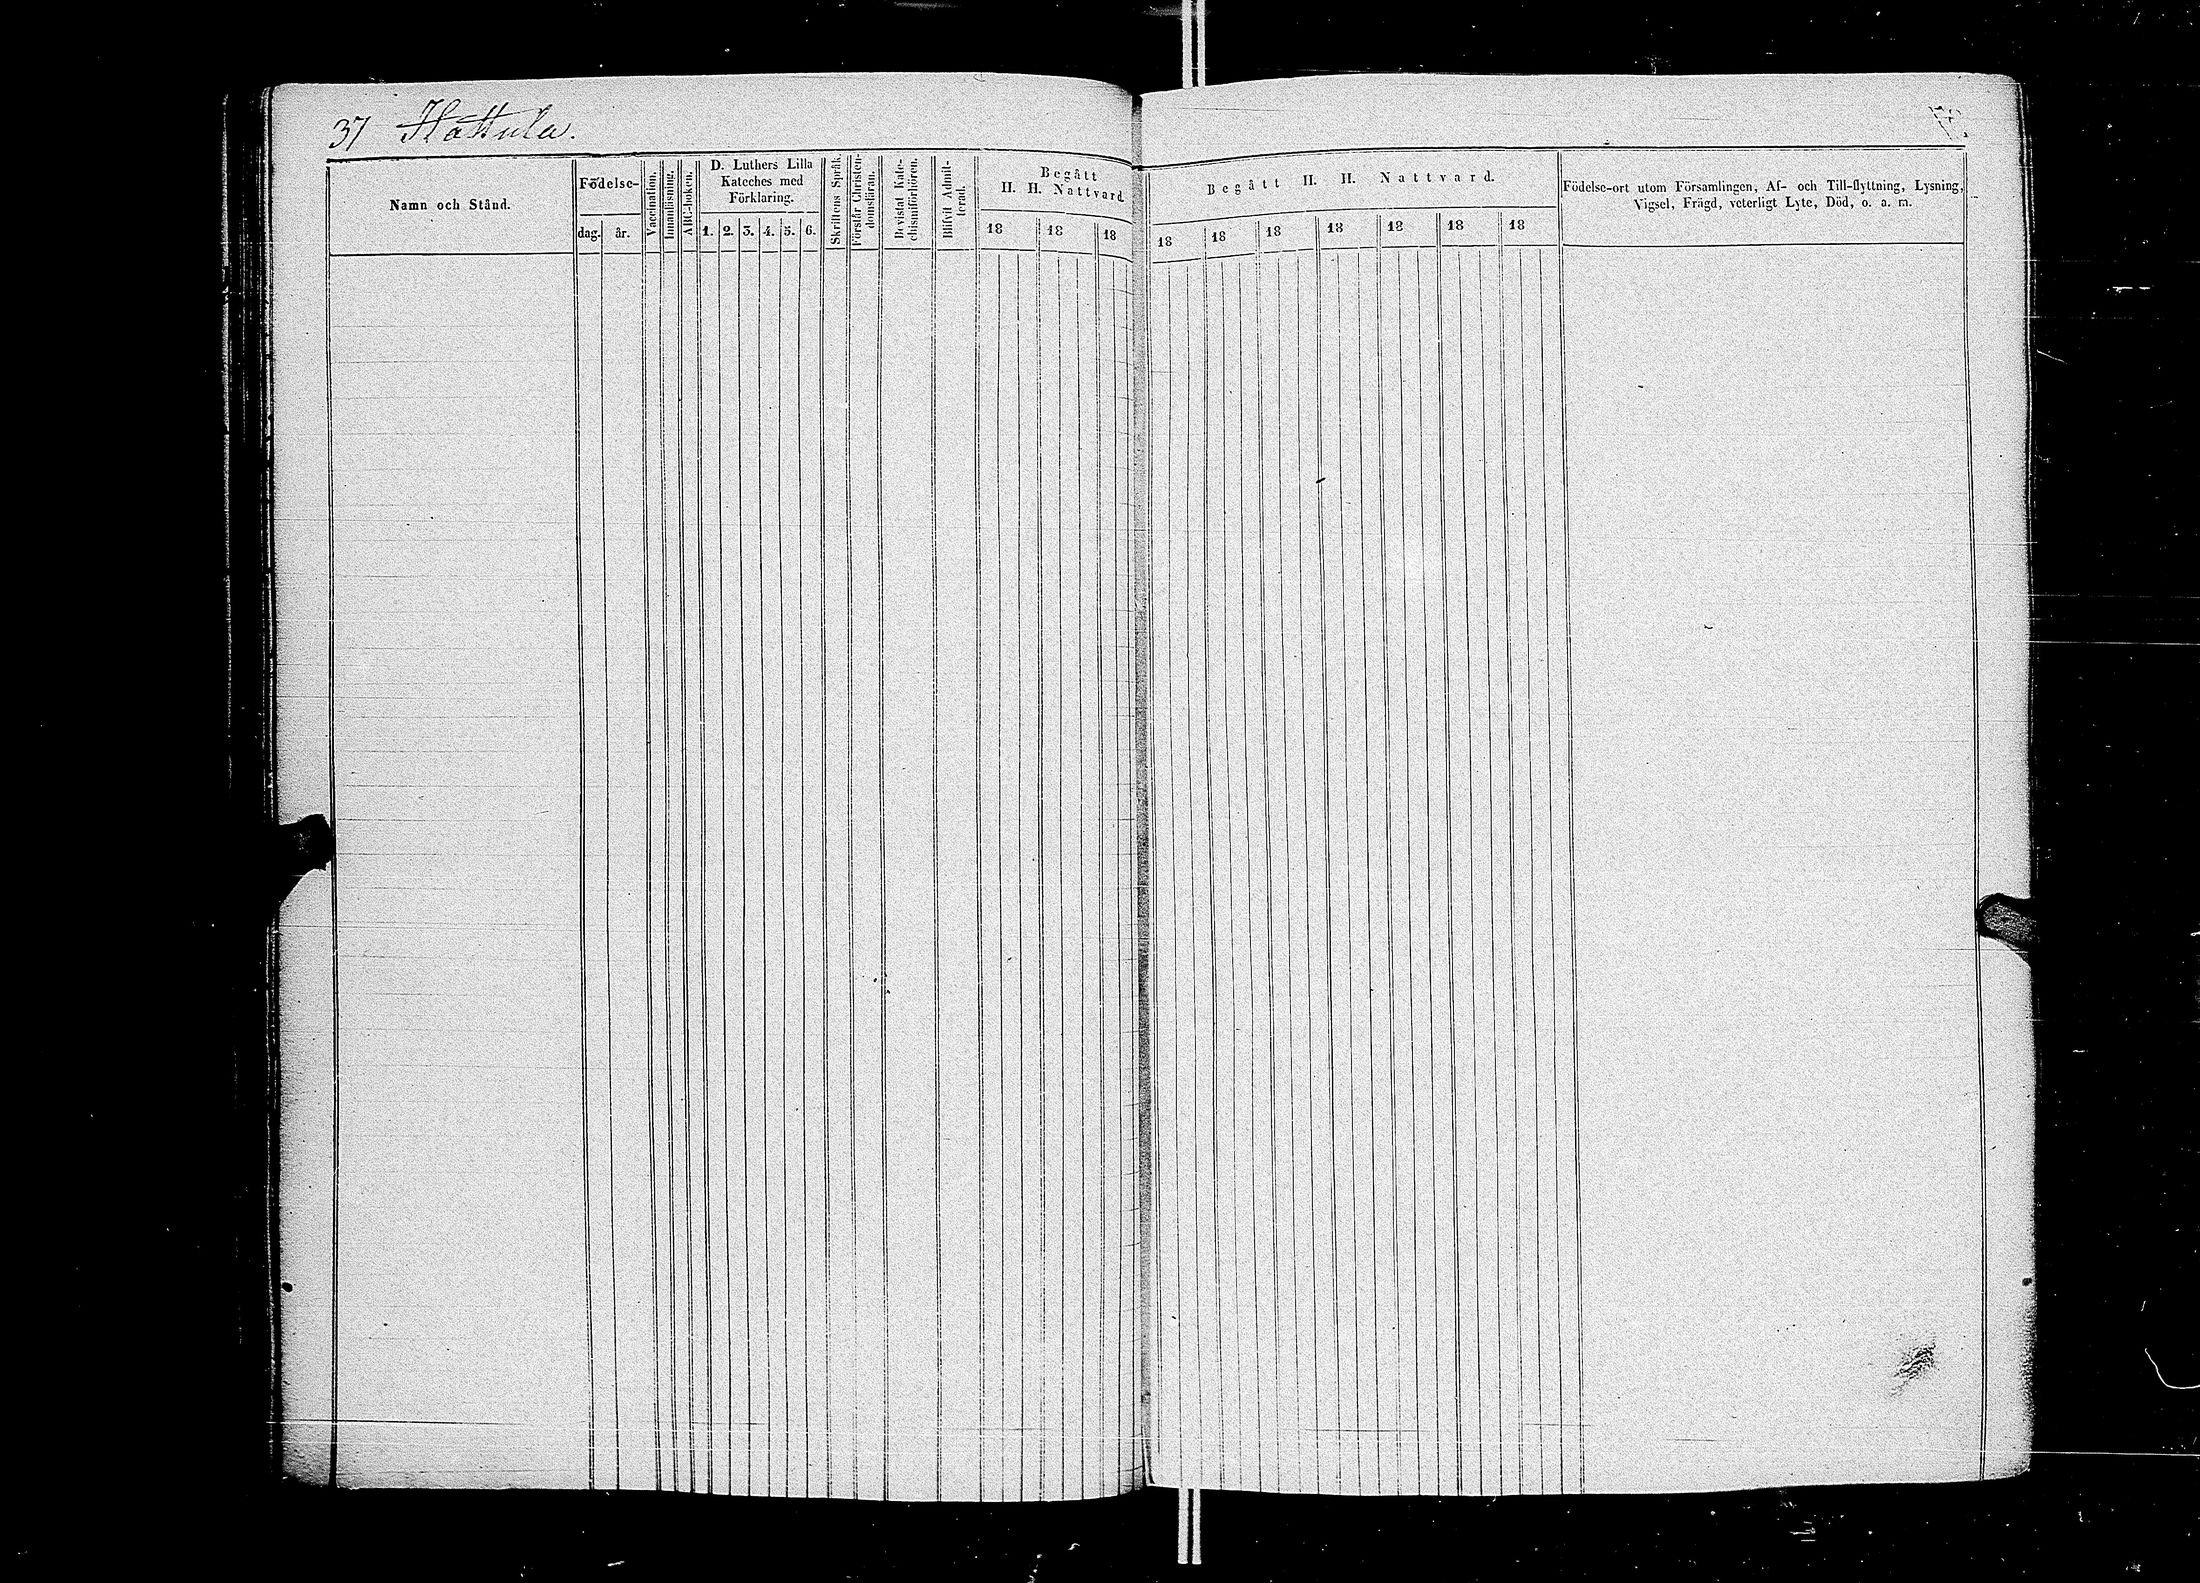 37 Hattula.
Namn och Stånd.
Födelse-
dag.
år.
Vaccination.
Innanläsning.
ABC-boken.
D. Luthers Lilla
Kateches med
Förklaring.
1. 2. 3. 4. 5. 6.
Skriftens Språk.
Förstår Christen-
domsläran.
Bevistat Kate-
chismiförhören.
Blifvit Admit-
terad.
Begått
H. H. Nattvard
18 18 18
Begått H. H. Nattvard.
18 18 18 18 18 18 18
Födelse-ort utom Församlingen, Af- och Till-flyttning, Lysning,
Vigsel, Frägd, veterligt Lyte, Död, o. a. m.